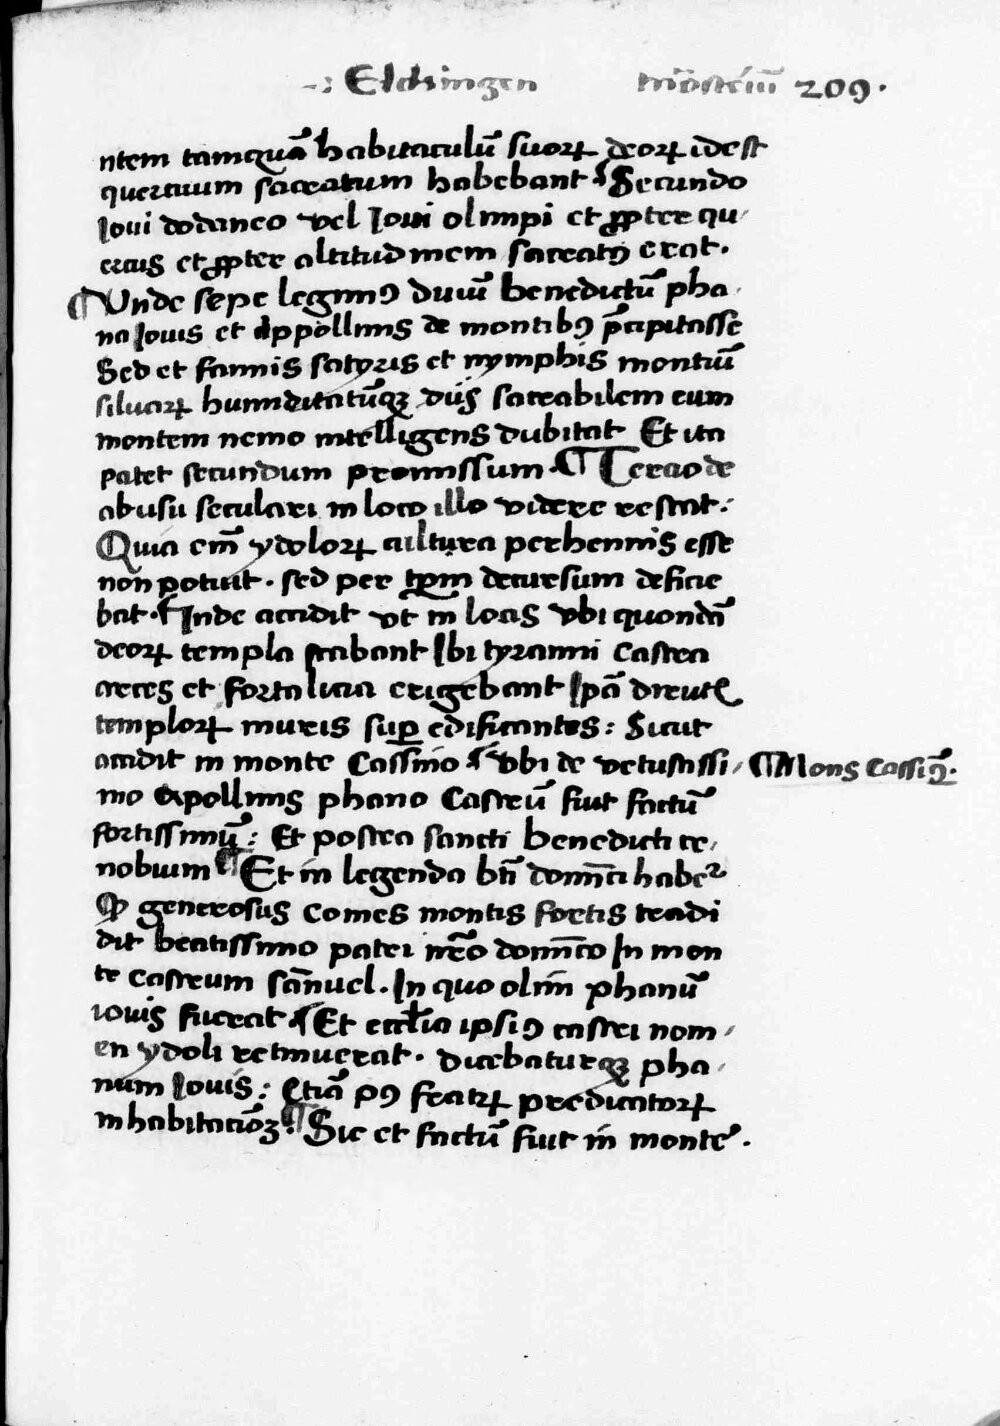 -: Elchingen mõsteriũ 209.
ntem tamquã habitaculũ suoꝝ deoꝝ idest
quercuum sacratum habebant ¶ Secundo
Ioui dodaneo vel Ioui olimpi et ꝓpter qu-
ercus et ꝓpter altitudinem sacratꝰ erat.
¶ Vnde sepe legimꝰ diuũ benedictũ pha-
na Iouis et Appollinis de montibꝰ p̃cipitasse
Sed et faunis satyris et nymphis montiũ
siluaꝝ humiditatũqꝫ diis sacrabilem eum
montem nemo intelligens dubitat Et ita
patet secundum promissum. ¶ Tercio de
abusu seculari in loco illo videre restat:
Quia em̃ ydoloꝝ cultura perhennis esse
non potuit. sed per tp̃m decursum deficie
bat. ¶ Inde accidit vt in locis vbi quondã
deoꝝ templa stabant Ibi tyranni castra
arces et fortalicia erigebant Ip̃a
temploꝝ muris suꝑ edificantes: Sicut
accidit in monte Cassino ¶ vbi de vetustissi- ¶ Mons Cassiꝰ.
mo Apollinis phano Castrũ fuit factũ
fortissimũ: Et postea sancti Benedicti ce-
nobium ¶ Et in legenda bt̃i domĩci haber᷑
Ꝙ generosus comes montis fortis tradi
dit beatissimo patri nr̃o domĩco In mon
te castrum sãnuel. In quo olim phanũ
iouis fuerat. ¶ Et eccl̃ia ipsiꝰ castri nom-
en ydoli retinuerat. dicebaturqꝫ pha-
num Iouis: Etiã pꝰ fratꝝ predicatoꝝ
inhabitacõꝫ. ¶ Sic et factũ fuit in monte.